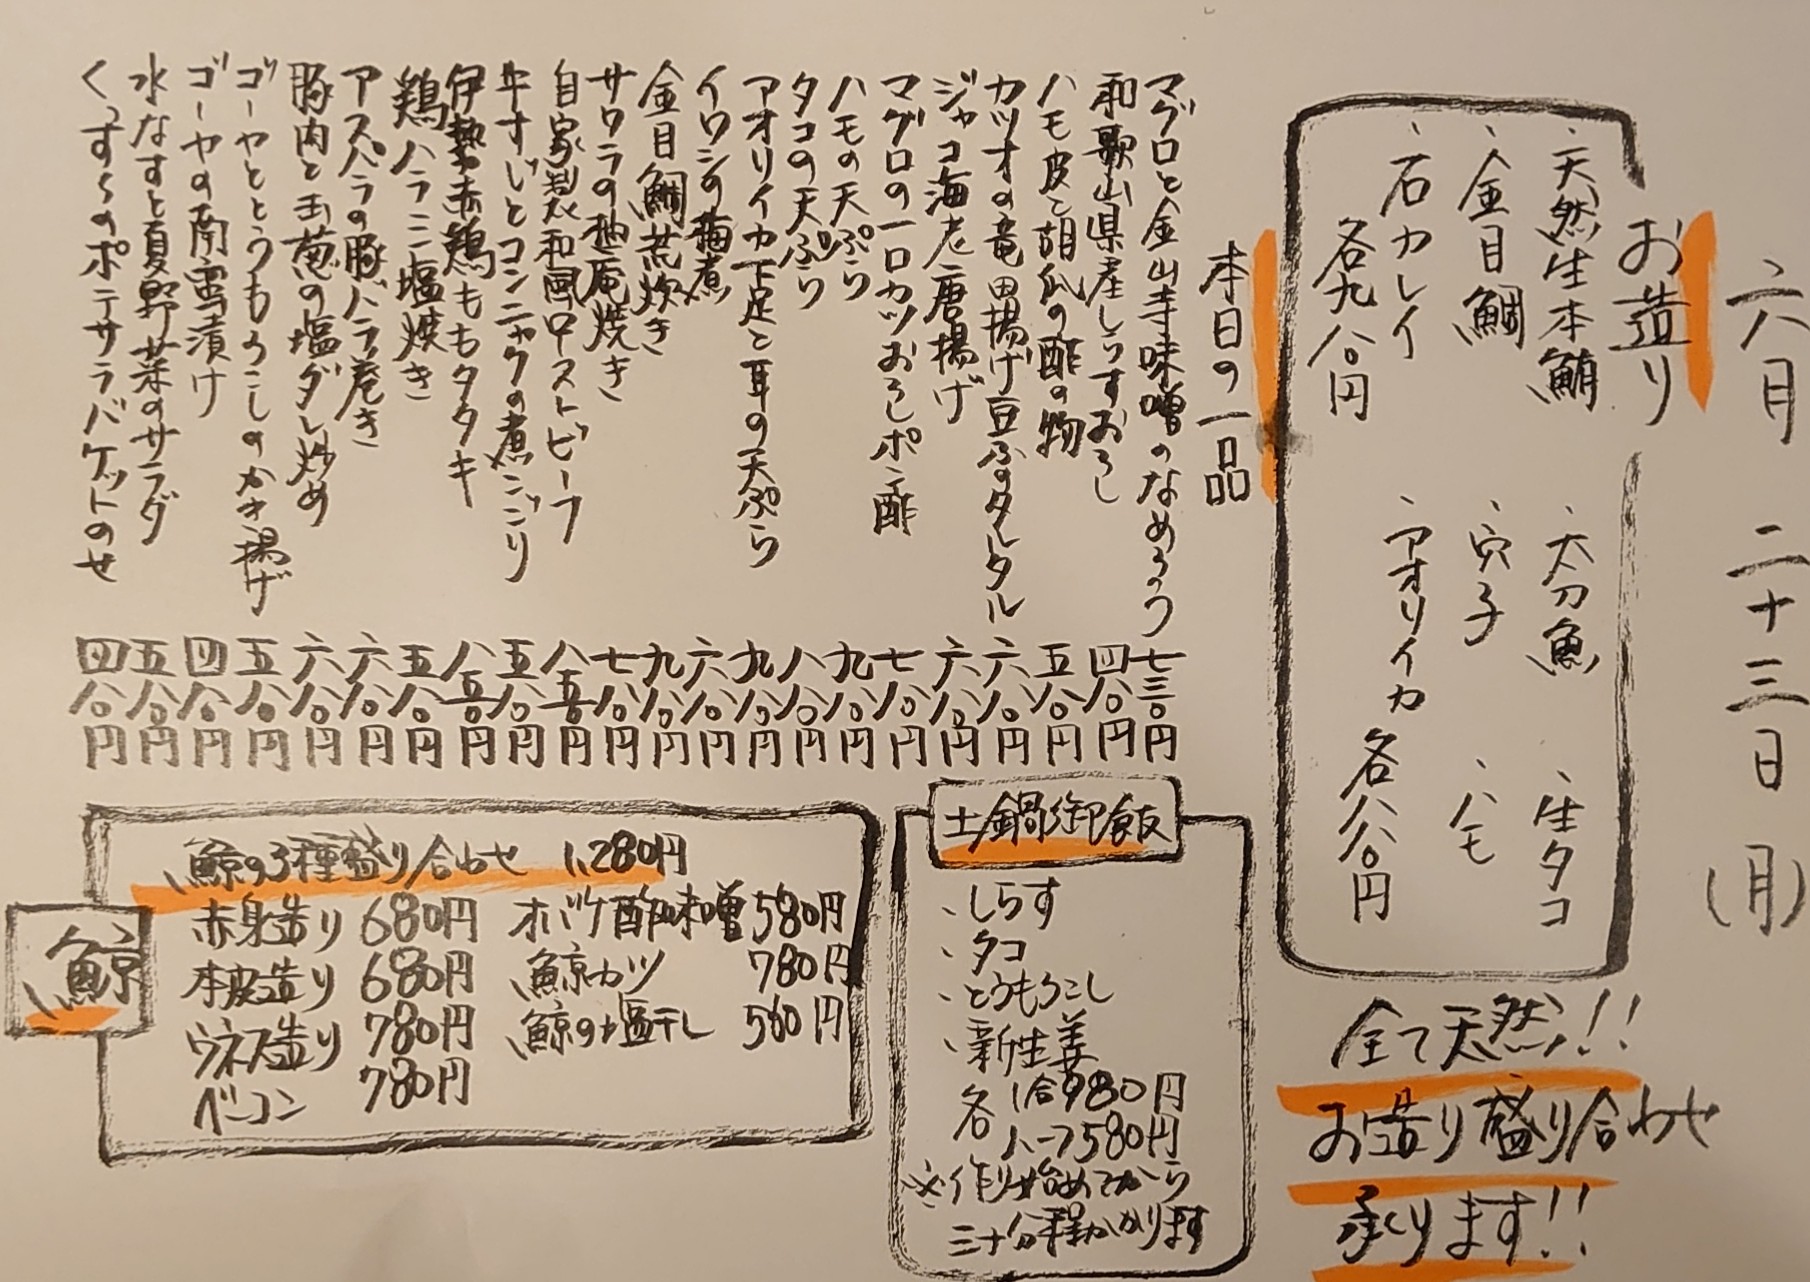 六月 二十三日 (月)
お造り
・天然生本鮪 ・太刀魚 ・生タコ
・金目鯛 ・穴子 ・ハモ
・石カレイ ・アオリイカ
各九八〇円 各八八〇円
全て天然!!
お造り盛り合わせ
承ります!!
本日の一品
マグロと金山寺味噌のなめろう 七三〇円
和歌山県産しらすおろし 四八〇円
ハモ皮と胡瓜の酢の物 五八〇円
カツオの竜田揚げ豆ふのタルタル 六八〇円
ジャコ海老唐揚げ 六八〇円
マグロの一口カツおろしポン酢 七八〇円
ハモの天ぷら 九八〇円
タコの天ぷら 八八〇円
アオリイカ下足と耳の天ぷら 九八〇円
イワシの梅煮 六八〇円
金目鯛荒炊き 九八〇円
サワラの柚庵焼き 七八〇円
自家製和風ローストビーフ 八五〇円
牛すじとコンニャクの煮こごり 五八〇円
伊勢赤鶏ももタタキ 八五〇円
鶏ハラミ塩焼き 五八〇円
アスパラの豚バラ巻き 六八〇円
豚肉と玉葱の塩ダレ炒め 六八〇円
ゴーヤととうもろこしのかき揚げ 五八〇円
ゴーヤの南蛮漬け 四八〇円
水なすと夏野菜のサラダ 五八〇円
のポテサラバケットのせ 四八〇円
土鍋御飯
・しらす
・タコ
・とうもろこし
・新生姜
各 1合980円
ハーフ580円
※作り始めてから
三十分程かかります
鯨
鯨の3種盛り合わせ 1,280円
赤身造り 680円 オバケ酢味噌 580円
本皮造り 680円 鯨カツ 780円
ウネス造り 780円 鯨の塩干し 560円
ベーコン 780円